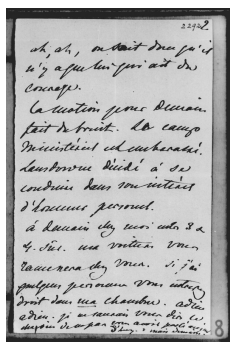 22922
ah, ah, on voit donc qu'il
n'y a que lui qui ait du
courage.
La motion pour demain
fait du bruit. Le camp
Ministériel est embarrassé.
Lansdowne décidé à se
conduire dans son intérêt
d'honneur personnel.
à demain chez moi entre 3 &
4. Sûr. ma voiture vous
ramenera chez vous. Si j'ai
quelques personnes vous
droit dans ma chambre. adieu
adieu. je ne saurais vous dire le
8